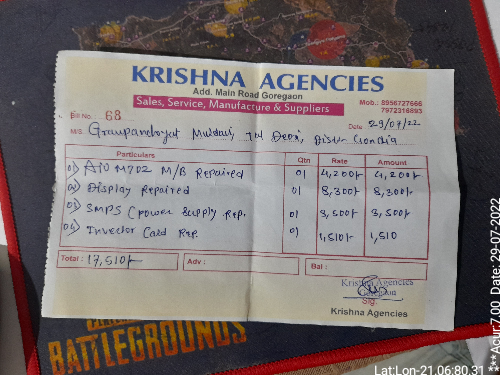 KRISHNA AGENCIES
Add. Main Road Goregaon
Sales, Service, Manufacture & Suppliers
Mob.: 8956727666
7972318893
Bill No. 68
Date 29/07/22
M/S. Grampanchayat Murdari, Tal Deori, Dist Gondia
Particulars Qtn Rate Amount
01) AIO M702 M/B Repaired 01 4,200/- 4,200/-
02) Display Repaired 01 8,300/- 8,300/-
03) SMPS (power supply Rep. 01 3,500/- 3,500/-
04) Invector Card Rep. 01 1,510/- 1,510
Total : 17,510/- Adv : Bal :
Krishna Agencies
Goregaon
Sig.
Krishna Agencies
BATTLEGROUNDS
Lat:Lon-21.06:80.31
***Acur:7.00 Date: 29-07-2022